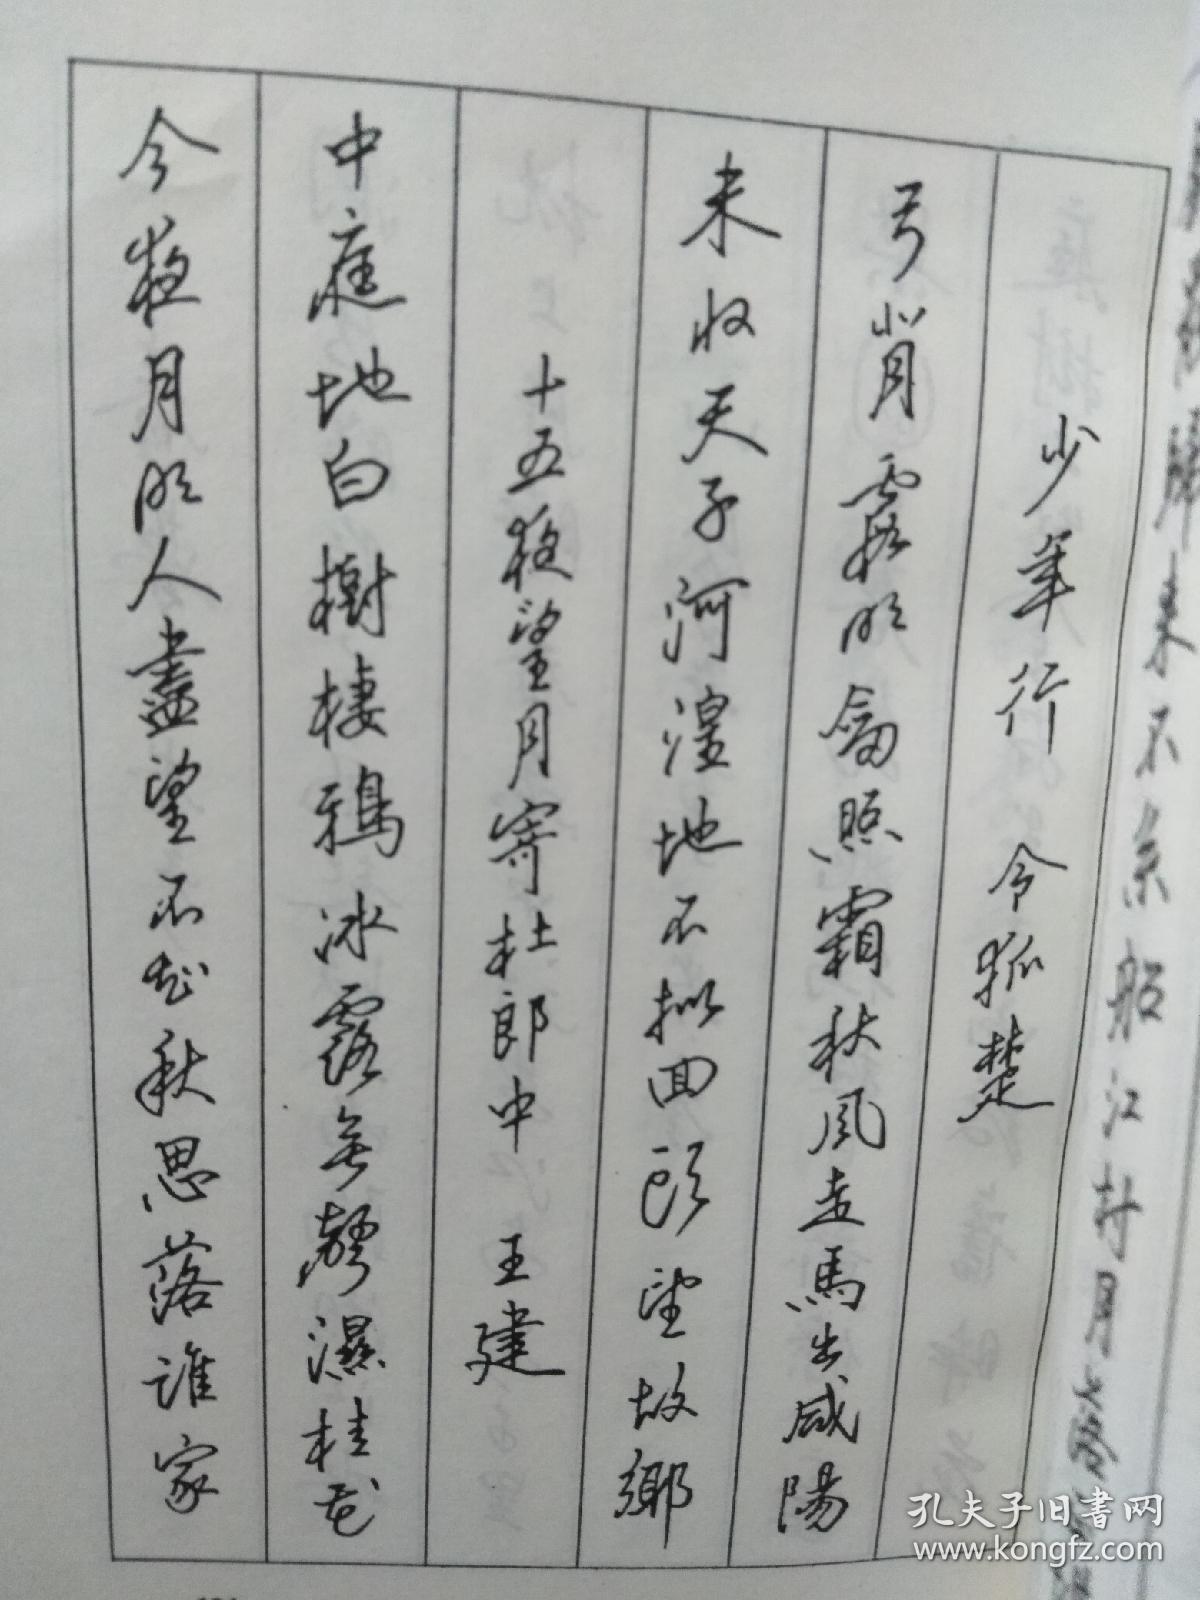 歸來不系船江村月落
少年行 令狐楚
弓背霞明劍照霜秋風走馬出咸陽
未收天子河湟地不擬回頭望故鄉
十五夜望月寄杜郎中 王建
中庭地白樹棲鴉冰露無聲濕桂花
今夜月明人盡望不知秋思落誰家
孔夫子旧书网
www.kongfz.com